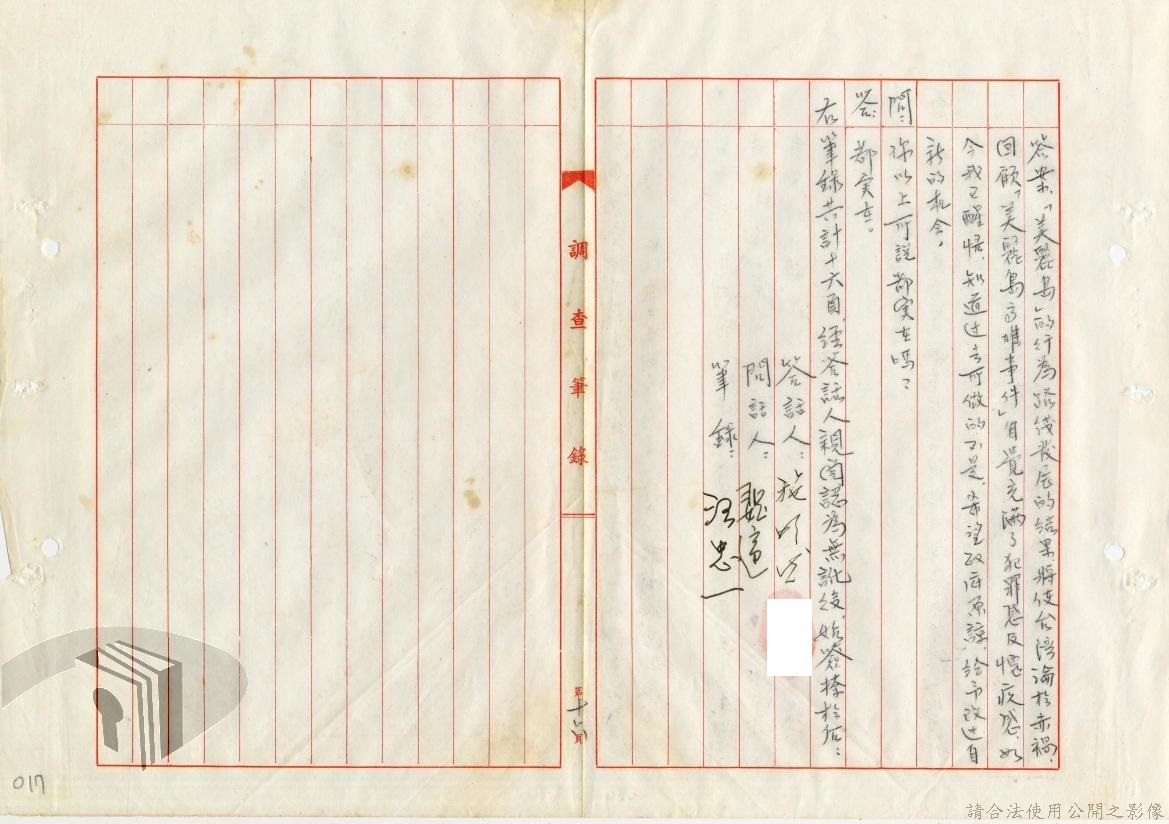 答案,「美麗島」的行為路线发展的结果,將使台湾淪於赤禍,
回顧「美麗島高雄事件」自覺充滿了犯罪感及愧疚感,如
今我已醒悟,知道过去所做的不是,希望政府原諒,給予改过自
新的机会。
問:你以上所說都実在嗎?
答:都実在。
右筆錄共計十六頁,經答話人親閱認為無訛後,始簽捺於后:
答話人:
問話人:
筆錄:汪忠一
調查筆錄
第十六頁
017
請合法使用公開之影像